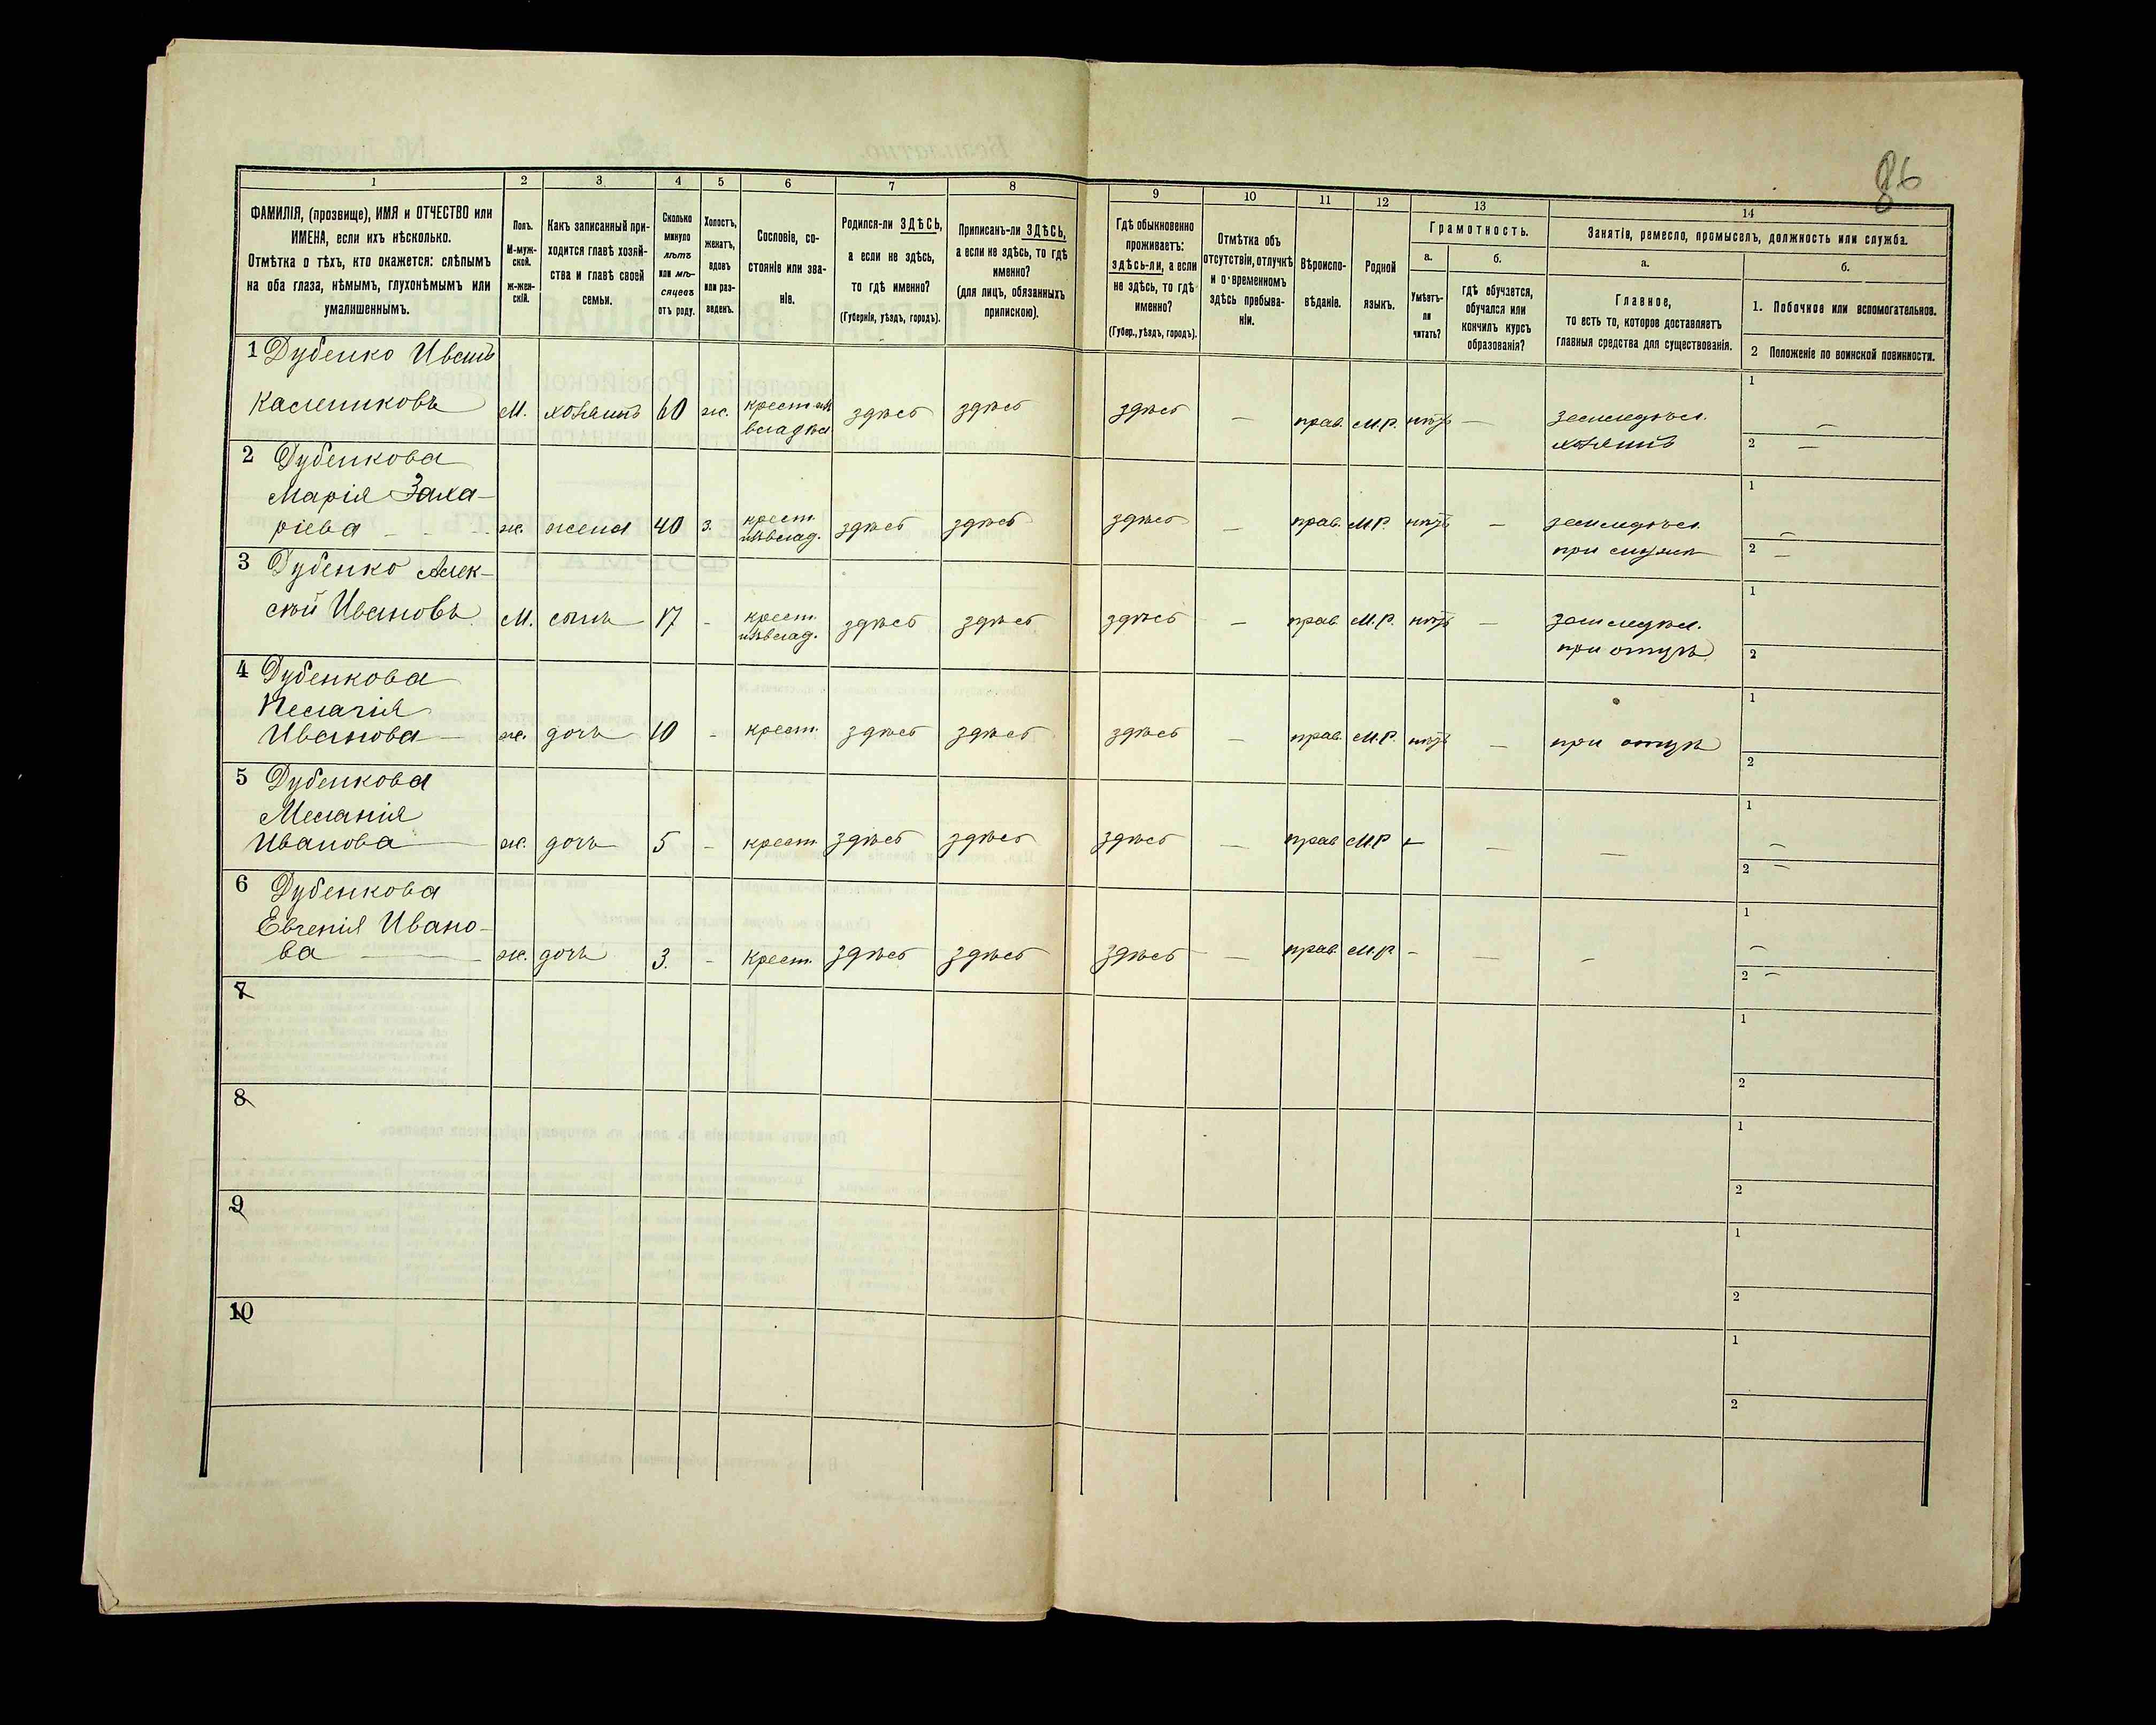 86
1 2 3 4 5 6 7 8 9 10 11 12 13 14
ФАМИЛІЯ, (прозвище), ИМЯ и ОТЧЕСТВО или
ИМЕНА, если ихъ нѣсколько.
Отмѣтка о тѣхъ, кто окажется: слѣпымъ
на оба глаза, нѣмымъ, глухонѣмымъ или
умалишеннымъ.
Полъ.
М-муж-
ской.
ж-жен-
скій.
Какъ записанный при-
ходится главѣ хозяй-
ства и главѣ своей
семьи.
Сколько
минуло
лѣтъ
или мѣ-
сяцевъ
отъ роду.
Холостъ,
женатъ,
вдовъ
или раз-
веденъ.
Сословіе, со-
стояніе или зва-
ніе.
Родился-ли ЗДѢСЬ,
а если не здѣсь,
то гдѣ именно?
(Губернія, уѣздъ, городъ).
Приписанъ-ли ЗДѢСЬ,
а если не здѣсь, то гдѣ
именно?
(для лицъ, обязанныхъ
припискою).
Гдѣ обыкновенно
проживаетъ:
здѣсь-ли, а если
не здѣсь, то гдѣ
именно?
(Губер., уѣздъ, городъ).
Отмѣтка объ
отсутствіи, отлучкѣ
и о временномъ
здѣсь пребыва-
ніи.
Вѣроиспо-
вѣданіе.
Родной
языкъ.
Грамотность.
а.
Умѣетъ-
ли
читать?
б.
гдѣ обучается,
обучался или
кончилъ курсъ
образованія?
Занятія, ремесло, промыселъ, должность или служба.
а.
Главное,
то есть то, которое доставляетъ
главныя средства для существованія.
б.
1. Побочное или вспомогательное.
2 Положеніе по воинской повинности.
1 Дубенко Иванъ
Калениковъ м. хозяинъ 60 ж. крест. изъ здѣсь здѣсь здѣсь — прав. М.Р. нѣтъ — земледѣл. 1 —
владѣл хозяинъ 2 —
2 Дубенкова
Марія Заха-
ріева ж. жена 40 з. крест. здѣсь здѣсь здѣсь — прав. М.Р. нѣтъ — земледѣл. 1 —
влад. при мужѣ 2 —
3 Дубенко Алек-
сѣй Ивановъ м. сынъ 17 - крест. здѣсь здѣсь здѣсь — прав. М.Р. нѣтъ — земледѣл. 1
влад. при отцѣ 2
4 Дубенкова
Пелагія
Иванова ж. дочь 10 - крест. здѣсь здѣсь здѣсь — прав. М.Р. нѣтъ — при отцѣ 1
2
5 Дубенкова
Меланія
Иванова ж. дочь 5 - крест. здѣсь здѣсь здѣсь — прав. М.Р. - — — 1 —
2 —
6 Дубенкова
Евгенія Ивано-
ва ж. дочь 3. - крест. здѣсь здѣсь здѣсь — прав. М.Р. - — - 1 —
2 —
7 1
2
8 1
2
9 1
2
10 1
2